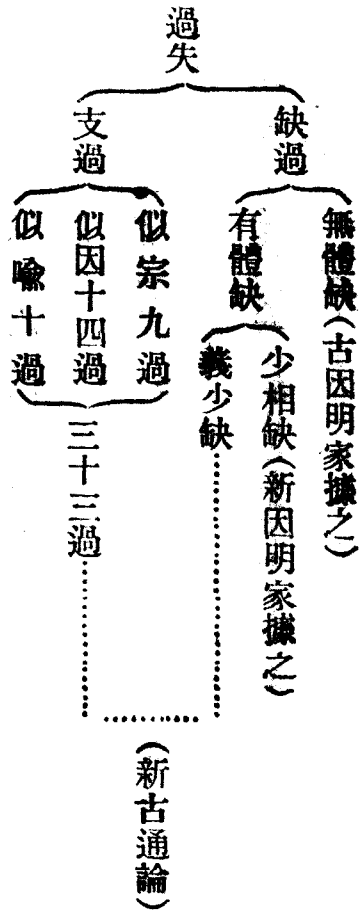 過失
缺過
無體缺(古因明家據之)
有體缺
少相缺(新因明家據之)
義少缺
支過
似宗九過
似因十四過
似喩十過
三十三過
(新古通論)